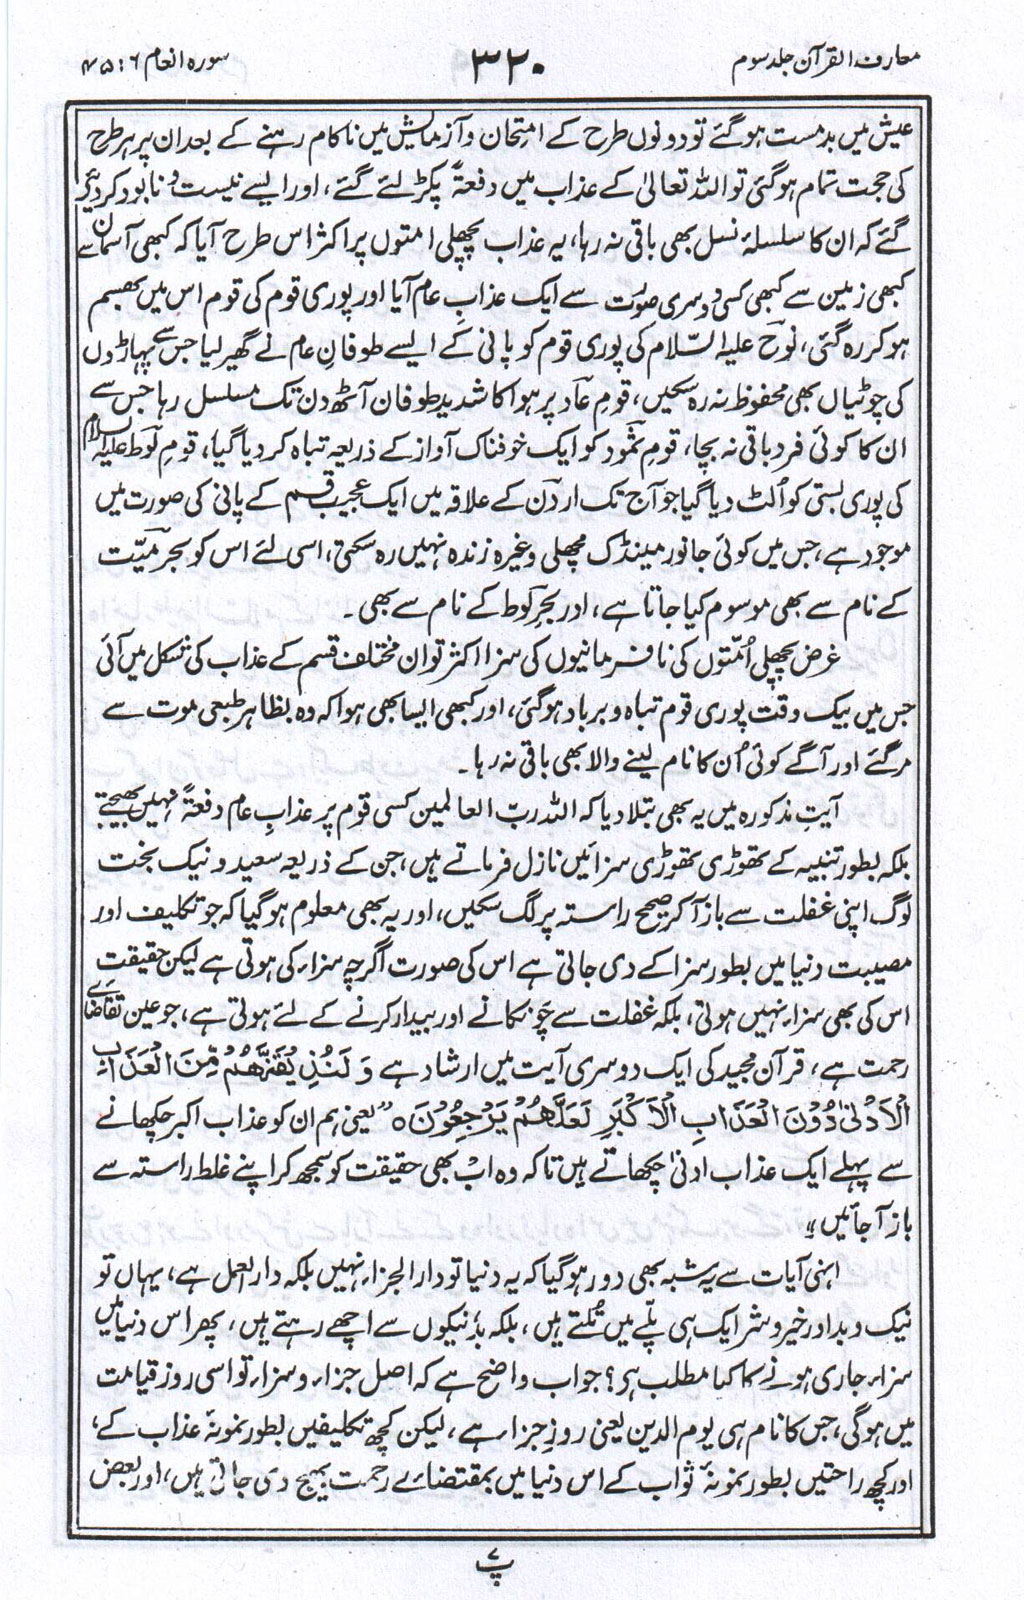 معارف القرآن جلد سوم
۳۲۰
سورہ انعام ۶ : ۴۵
عیش میں بدمست ہوگئے تو دونوں طرح کے امتحان و آزمائش میں ناکام رہنے کے بعد ان پر ہر طرح
کی حجت تمام ہوگئی تو اللہ تعالیٰ کے عذاب میں دفعۃً پکڑ لئے گئے، اور ایسے نیست و نابود کر دیئے
گئے کہ ان کا سلسلۂ نسل بھی باقی نہ رہا، یہ عذاب پچھلی امتوں پر اکثر اس طرح آیا کہ کبھی آسمان سے
کبھی زمین سے کبھی کسی دوسری صورت سے ایک عذابِ عام آیا اور پوری قوم کی قوم اس میں بھسم
ہو کر رہ گئی، نوح علیہ السّلام کی پوری قوم کو پانی کے ایسے طوفانِ عام نے گھیر لیا جس سے پہاڑوں
کی چوٹیاں بھی محفوظ نہ رہ سکیں، قومِ عاد پر ہوا کا شدید طوفان آٹھ دن تک مسلسل رہا جس سے
ان کا کوئی فرد باقی نہ بچا، قومِ ثمود کو ایک خوفناک آواز کے ذریعہ تباہ کر دیا گیا، قومِ لوط علیہ السلام
کی پوری بستی کو اُلٹ دیا گیا جو آج تک اردن کے علاقہ میں ایک عجیب قسم کے پانی کی صورت میں
موجود ہے، جس میں کوئی جانور مینڈک مچھلی وغیرہ زندہ نہیں رہ سکتی، اسی لئے اس کو بحر میّت
کے نام سے بھی موسوم کیا جاتا ہے، اور بحرِ لوط کے نام سے بھی۔
غرض پچھلی اُمّتوں کی نافرمانیوں کی سزا اکثر تو ان مختلف قسم کے عذاب کی شکل میں آئی
جس میں بیک وقت پوری قوم تباہ و برباد ہوگئی، اور کبھی ایسا بھی ہوا کہ وہ بظاہر طبعی موت سے
مر گئے اور آگے کوئی اُن کا نام لینے والا بھی باقی نہ رہا۔
آیتِ مذکورہ میں یہ بھی بتلا دیا کہ اللہ ربّ العالمین کسی قوم پر عذابِ عام دفعۃً نہیں بھیجتے
بلکہ بطور تنبیہ کے تھوڑی تھوڑی سزائیں نازل فرماتے ہیں، جن کے ذریعہ سعید و نیک بخت
لوگ اپنی غفلت سے باز آ کر صحیح راستہ پر لگ سکیں، اور یہ بھی معلوم ہوگیا کہ جو تکلیف اور
مصیبت دنیا میں بطور سزا کے دی جاتی ہے اس کی صورت اگرچہ سزاء کی ہوتی ہے لیکن حقیقت
اس کی بھی سزاء نہیں ہوتی، بلکہ غفلت سے چونکانے اور بیدار کرنے کے لئے ہوتی ہے، جو عین تقاضائے
رحمت ہے، قرآن مجید کی ایک دوسری آیت میں ارشاد ہے وَلَنُذِیْقَنَّھُمْ مِّنَ الْعَذَابِ
الْاَدْنٰی دُوْنَ الْعَذَابِ الْاَکْبَرِ لَعَلَّھُمْ یَرْجِعُوْنَ ہ ”یعنی ہم ان کو عذاب اکبر چکھانے
سے پہلے ایک عذاب ادنیٰ چکھاتے ہیں تاکہ وہ اب بھی حقیقت کو سمجھ کر اپنے غلط راستہ سے
باز آجائیں“
انہی آیات سے یہ شبہ بھی دور ہوگیا کہ یہ دنیا تو دار الجزاء نہیں بلکہ دار العمل ہے، یہاں تو
نیک و بد اور خیر و شر ایک ہی پلّے میں تُلتے ہیں، بلکہ بد نیکوں سے اچھے رہتے ہیں، پھر اس دنیا میں
سزاء جاری ہونے کا کیا مطلب ہی؟ جواب واضح ہے کہ اصل جزاء و سزاء تو اسی روز قیامت
میں ہوگی، جس کا نام ہی یوم الدین یعنی روزِ جزاء ہے، لیکن کچھ تکلیفیں بطور نمونۂ عذاب کے،
اور کچھ راحتیں بطور نمونۂ ثواب کے اس دنیا میں بمقتضائے رحمت بھیج دی جاتی ہیں، اور بعض
پ۷